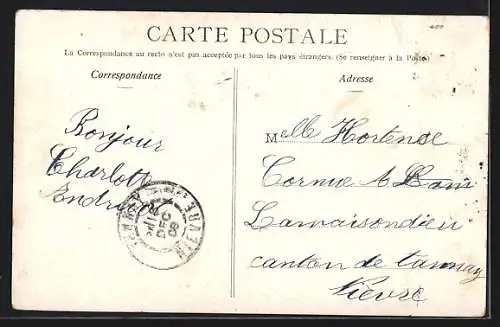 CARTE POSTALE
La Correspondance au recto n'est pas acceptée par tous les pays étrangers. (Se renseigner à la Poste)
Correspondance
Adresse
Bonjour
Charlotte
Melle Hortense
Cornue A
Lamaisondieu
canton de tannay
Nièvre
DEC
08
NIEVRE